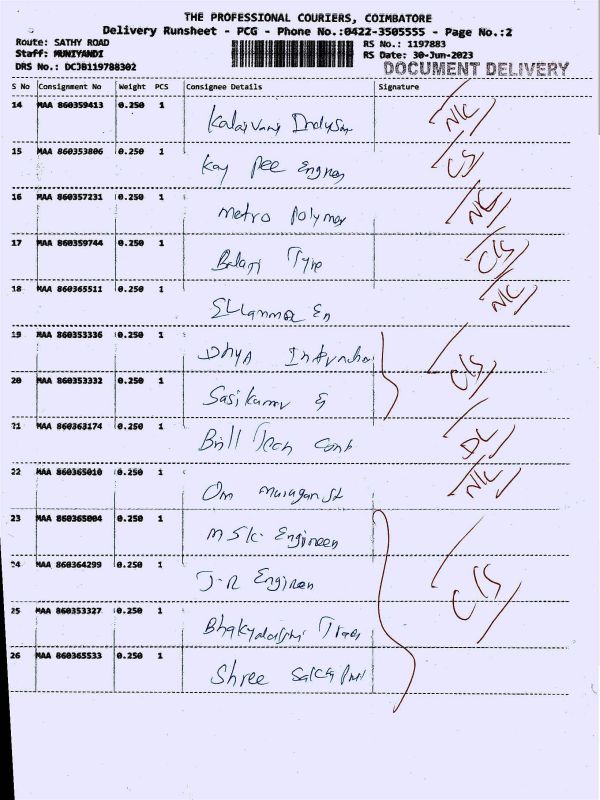 THE PROFESSIONAL COURIERS, COIMBATORE
Delivery Runsheet - PCG - Phone No.:0422-3505555 - Page No.:2
Route: SATHY ROAD RS No.: 1197883
Staff: MUNIYANDI RS Date: 30-Jun-2023
DRS No.: DCJB119788302 DOCUMENT DELIVERY
S No Consignment No Weight PCS Consignee Details Signature
14 MAA 860359413 0.250 1 N/C
15 MAA 860353806 0.250 1 Kay Pee C/S
16 MAA 860357231 0.250 1 Metro Polymer N/C
17 MAA 860359744 0.250 1 Balaji Tyre C/S
18 MAA 860365511 0.250 1 En N/C
19 MAA 860353336 0.250 1
20 MAA 860353332 0.250 1 Sasikumar E C/S
21 MAA 860363174 0.250 1 Brill Tech DL
22 MAA 860365010 0.250 1 Om Murugan St N/C
23 MAA 860365004 0.250 1 MSK. Engineen
24 MAA 860364299 0.250 1 J-R Engineen C/S
25 MAA 860353327 0.250 1
26 MAA 860365533 0.250 1 Shree